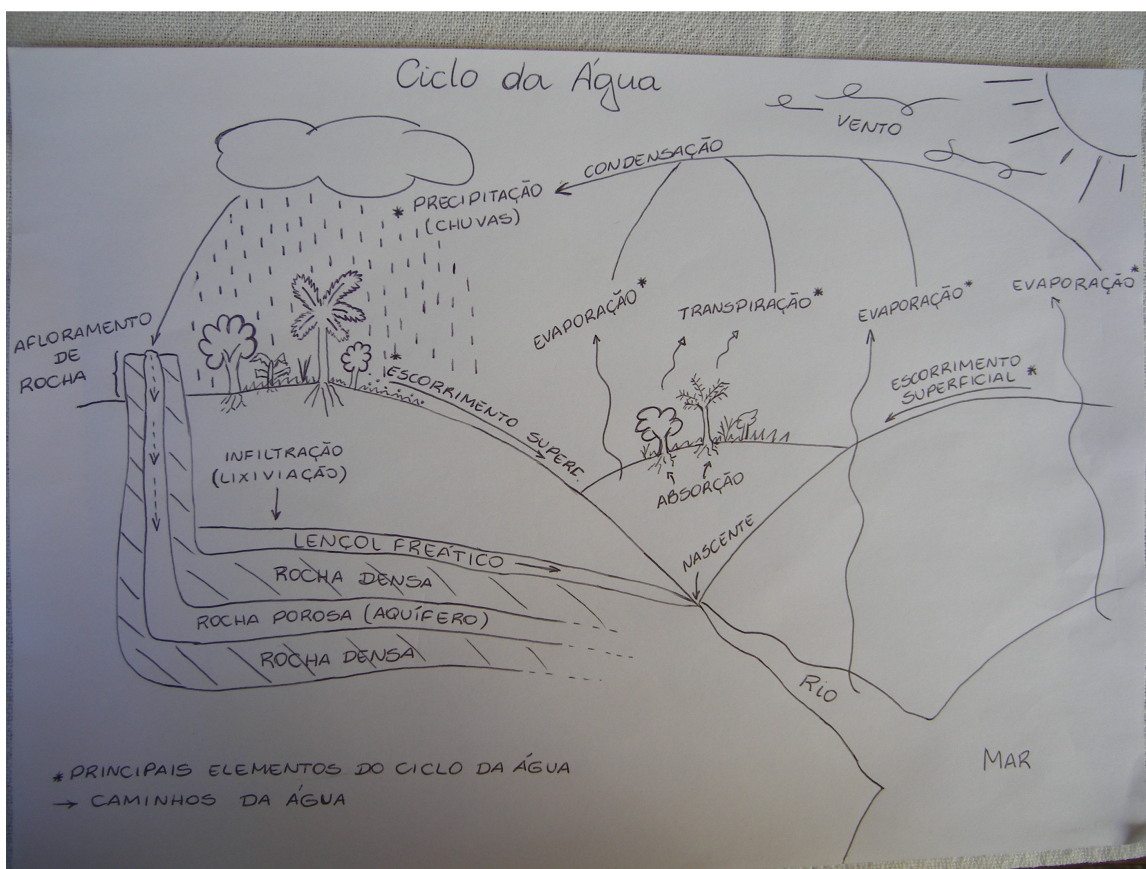 Ciclo da Água
VENTO
CONDENSAÇÃO
* PRECIPITAÇÃO
(CHUVAS)
EVAPORAÇÃO*
TRANSPIRAÇÃO*
EVAPORAÇÃO*
EVAPORAÇÃO*
AFLORAMENTO
DE
ROCHA
* ESCORRIMENTO SUPERC.
ESCORRIMENTO
SUPERFICIAL*
INFILTRAÇÃO
(LIXIVIAÇÃO)
ABSORÇÃO
NASCENTE
LENÇOL FREÁTICO
ROCHA DENSA
ROCHA POROSA (AQUÍFERO)
ROCHA DENSA
RIO
MAR
* PRINCIPAIS ELEMENTOS DO CICLO DA ÁGUA
→ CAMINHOS DA ÁGUA